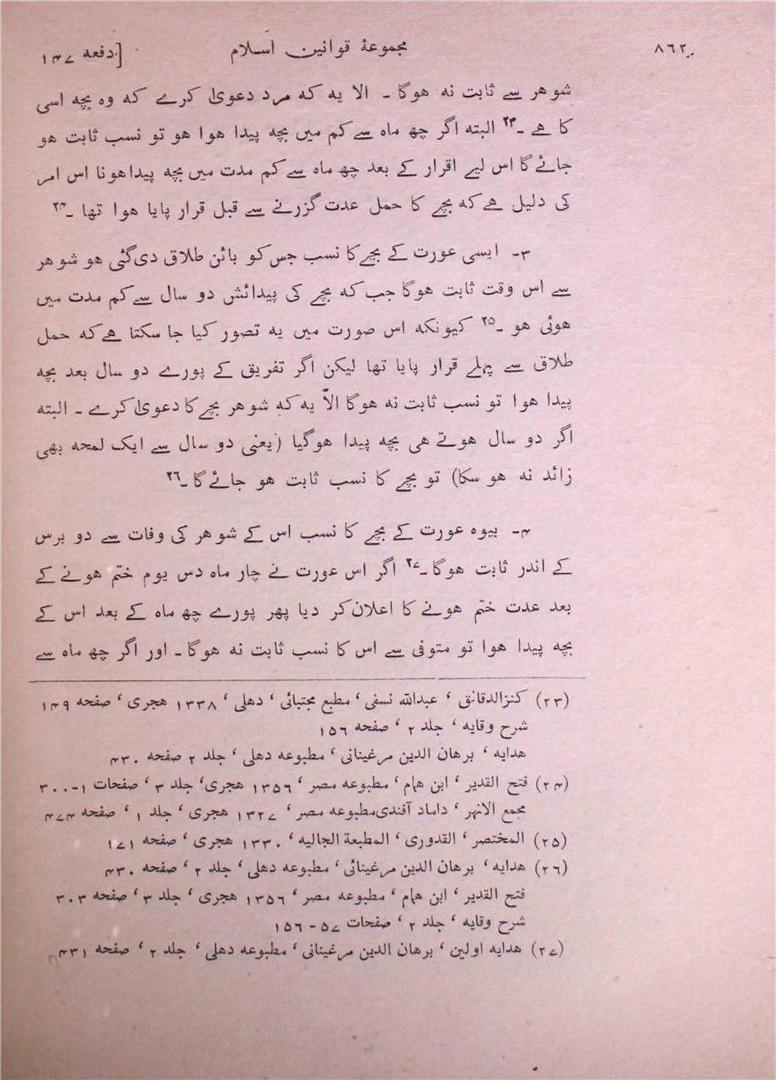 ۸٦۲ مجموعۂ قوانین اسلام [دفعه ۱۴۷
شوهر سے ثابت نه هوگا ۔ الا یه که مرد دعویٰ کرے که وه بچه اسی
کا هے ۔۲۳ البته اگر چھ ماه سے کم میں بچه پیدا هوا هو تو نسب ثابت هو
جائے گا اس لیے اقرار کے بعد چھ ماه سے کم مدت میں بچه پیدا هونا اس امر
کی دلیل هے که بچے کا حمل عدت گزرنے سے قبل قرار پایا هوا تھا ۔۲۴
۳۔ ایسی عورت کے بچے کا نسب جس کو بائن طلاق دی گئی هو شوهر
سے اس وقت ثابت هوگا جب که بچے کی پیدائش دو سال سے کم مدت میں
هوئی هو ۔۲۵ کیونکه اس صورت میں یه تصور کیا جا سکتا هے که حمل
طلاق سے پہلے قرار پایا تھا لیکن اگر تفریق کے پورے دو سال بعد بچه
پیدا هوا تو نسب ثابت نه هوگا الاّ یه که شوهر بچے کا دعویٰ کرے ۔ البته
اگر دو سال هوتے هی بچه پیدا هوگیا (یعنی دو سال سے ایک لمحه بھی
زائد نه هو سکا) تو بچے کا نسب ثابت هو جائے گا ۔۲٦
۴۔ بیوه عورت کے بچے کا نسب اس کے شوهر کی وفات سے دو برس
کے اندر ثابت هوگا ۔۲۷ اگر اس عورت نے چار ماه دس یوم ختم هونے کے
بعد عدت ختم هونے کا اعلان کر دیا پھر پورے چھ ماه کے بعد اس کے
بچه پیدا هوا تو متوفی سے اس کا نسب ثابت نه هوگا ۔ اور اگر چھ ماه سے
(۲۳) کنزالدقائق ، عبدالله نسفی ، مطبع مجتبائی ، دهلی ، ۱۳۳۸ هجری ، صفحه ۱۴۹
شرح وقایه ، جلد ۲ ، صفحه ۱۵٦
هدایه ، برهان الدین مرغینانی ، مطبوعه دهلی ، جلد ۲ صفحه ۴۳۰
(۲۴) فتح القدیر ، ابن همام ، مطبوعه مصر ، ۱۳۵٦ هجری، جلد ۳ ، صفحات ۱-۳۰۰
مجمع الانهر ، داماد آفندی مطبوعه مصر ، ۱۳۲۷ هجری ، جلد ۱ ، صفحه ۴۷۴
(۲۵) المختصر ، القدوری ، المطبعة الجالیه ، ۱۳۳۰ هجری ، صفحه ۱۷۱
(۲٦) هدایه ، برهان الدین مرغینائی ، مطبوعه دهلی ، جلد ۲ ، صفحه ۴۳۰
فتح القدیر ، ابن همام ، مطبوعه مصر ، ۱۳۵٦ هجری ، جلد ۳ ، صفحه ۳۰۳
شرح وقایه ، جلد ۲ ، صفحات ۵۷ - ۱۵٦
(۲۷) هدایه اولین ، برهان الدین مرغینانی ، مطبوعه دهلی ، جلد ۲ ، صفحه ۴۳۱